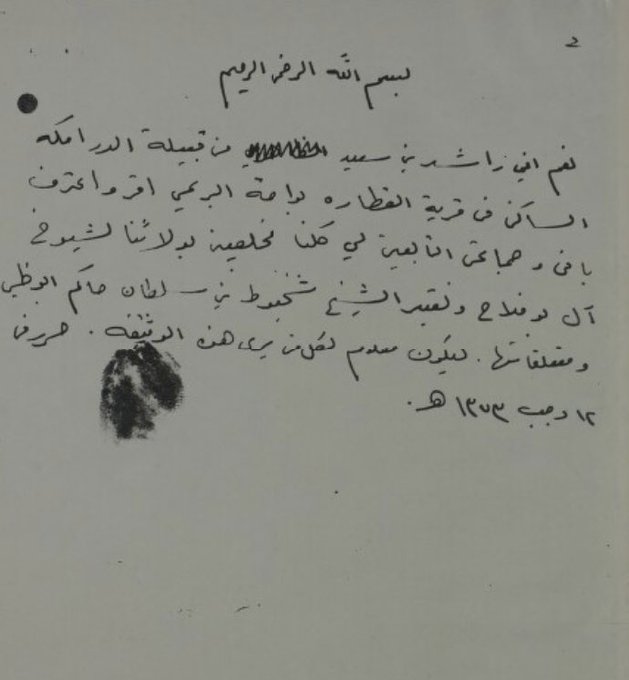 2
بسم الله الرحمن الرحيم
نعم اني راشد بن سعيد من قبيلة الدرامكه
الساكن في قرية القطاره بواحة البريمي اقر واعترف
باني وجماعتي التابعين لي كلنا مخلصين بولائنا لشيوخ
آل بو فلاح ونعتبر الشيخ شخبوط بن سلطان حاكم ابوظبي
ومتعلقاتها. ليكون معلوم لكل من يرى هذه الوثيقه. حرر في
١٢ رجب ١٣٧٣ هـ.